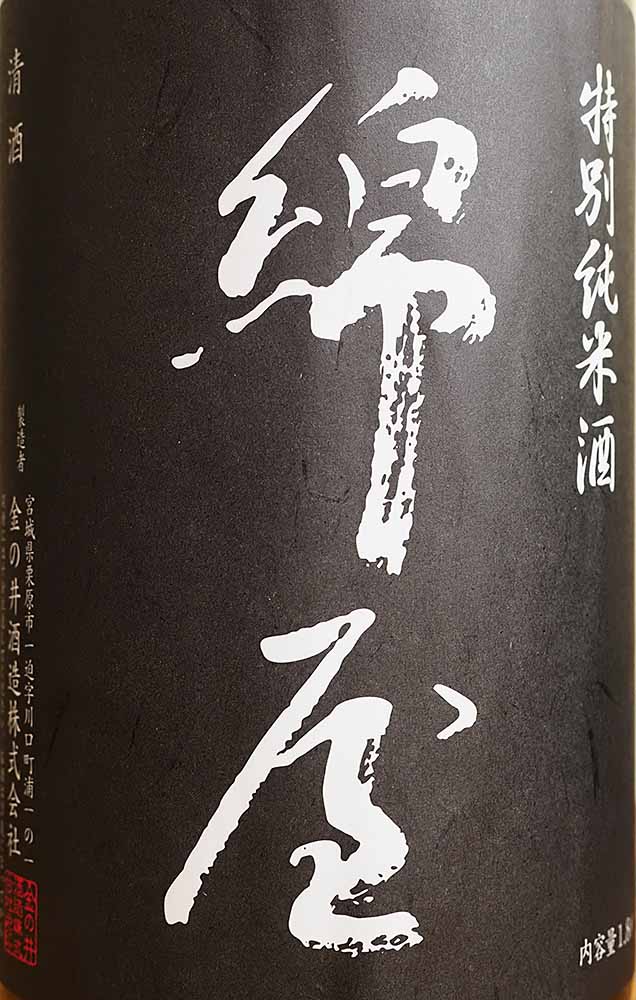 特別純米酒
内容量1.8
綿屋
清酒
製造者
宮城県栗原市一迫字川口町浦一の一
金の井酒造株式会社
金の井